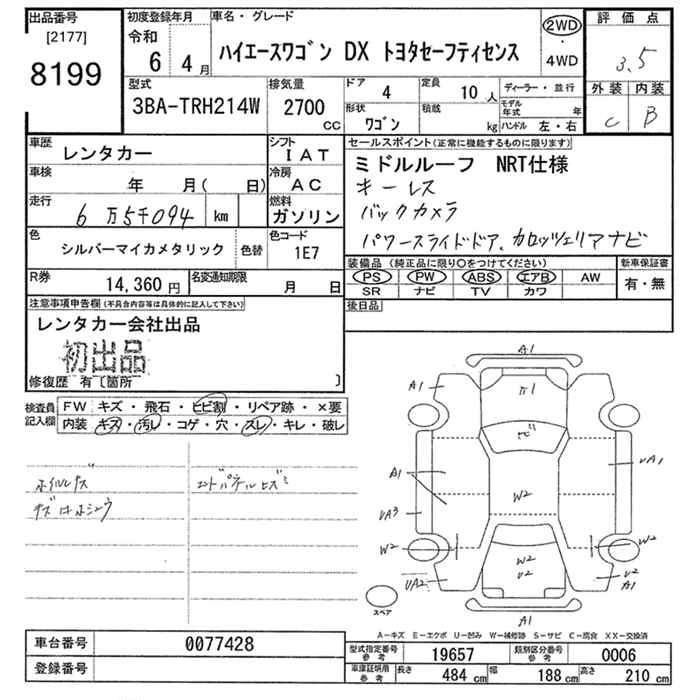 出品番号 初度登録年月 車名・グレード 評価点
[2177] 令和 2WD
8199 6年 4月 ハイエースワゴン DX トヨタセーフティセンス ・ 4WD 3.5
型式 排気量 ドア 4 定員 10人 ディーラー・並行 外装 内装
3BA-TRH214W 2700 CC 形状 ワゴン 積載 kg モデル年式 年 ハンドル 左・右 C B
車歴 レンタカー シフト IAT セールスポイント(正常に機能するものに限ります)
車検 年 月( 日) 冷房 AC ミドルルーフ NRT仕様
走行 6万5千094 km 燃料 ガソリン キーレス
バックカメラ
色 シルバーマイカメタリック 色替 色コード 1E7 パワースライドドア、カロッツェリアナビ
R券 14,360円 名変通知期限 月 日 装備品(純正品に限り○をつけてください) 新車保証書
PS PW ABS エアB AW 有・無
SR ナビ TV カワ
注意事項申告欄(不具合内容等は具体的に記入して下さい) 後日品
レンタカー会社出品
初出品
修復歴 有〔箇所 〕
検査員記入欄 FW キズ・飛石・ヒビ割・リペア跡・×要
内装 キズ・汚レ・コゲ・穴・スレ・キレ・破レ
ホイルキズ
A1
A1 A1
A1
W2
UA1
UA3
W2 W2
UA2 W2
U2 U2
A1
A1
スペア
A-キズ E-エクボ U-凹み W-補修跡 S-サビ C-腐食 XX-交換済
車台番号 0077428 型式指定番号 参考 19657 類別区分番号 参考 0006
登録番号 車庫証明用 参考 長さ 484cm 幅 188cm 高さ 210cm